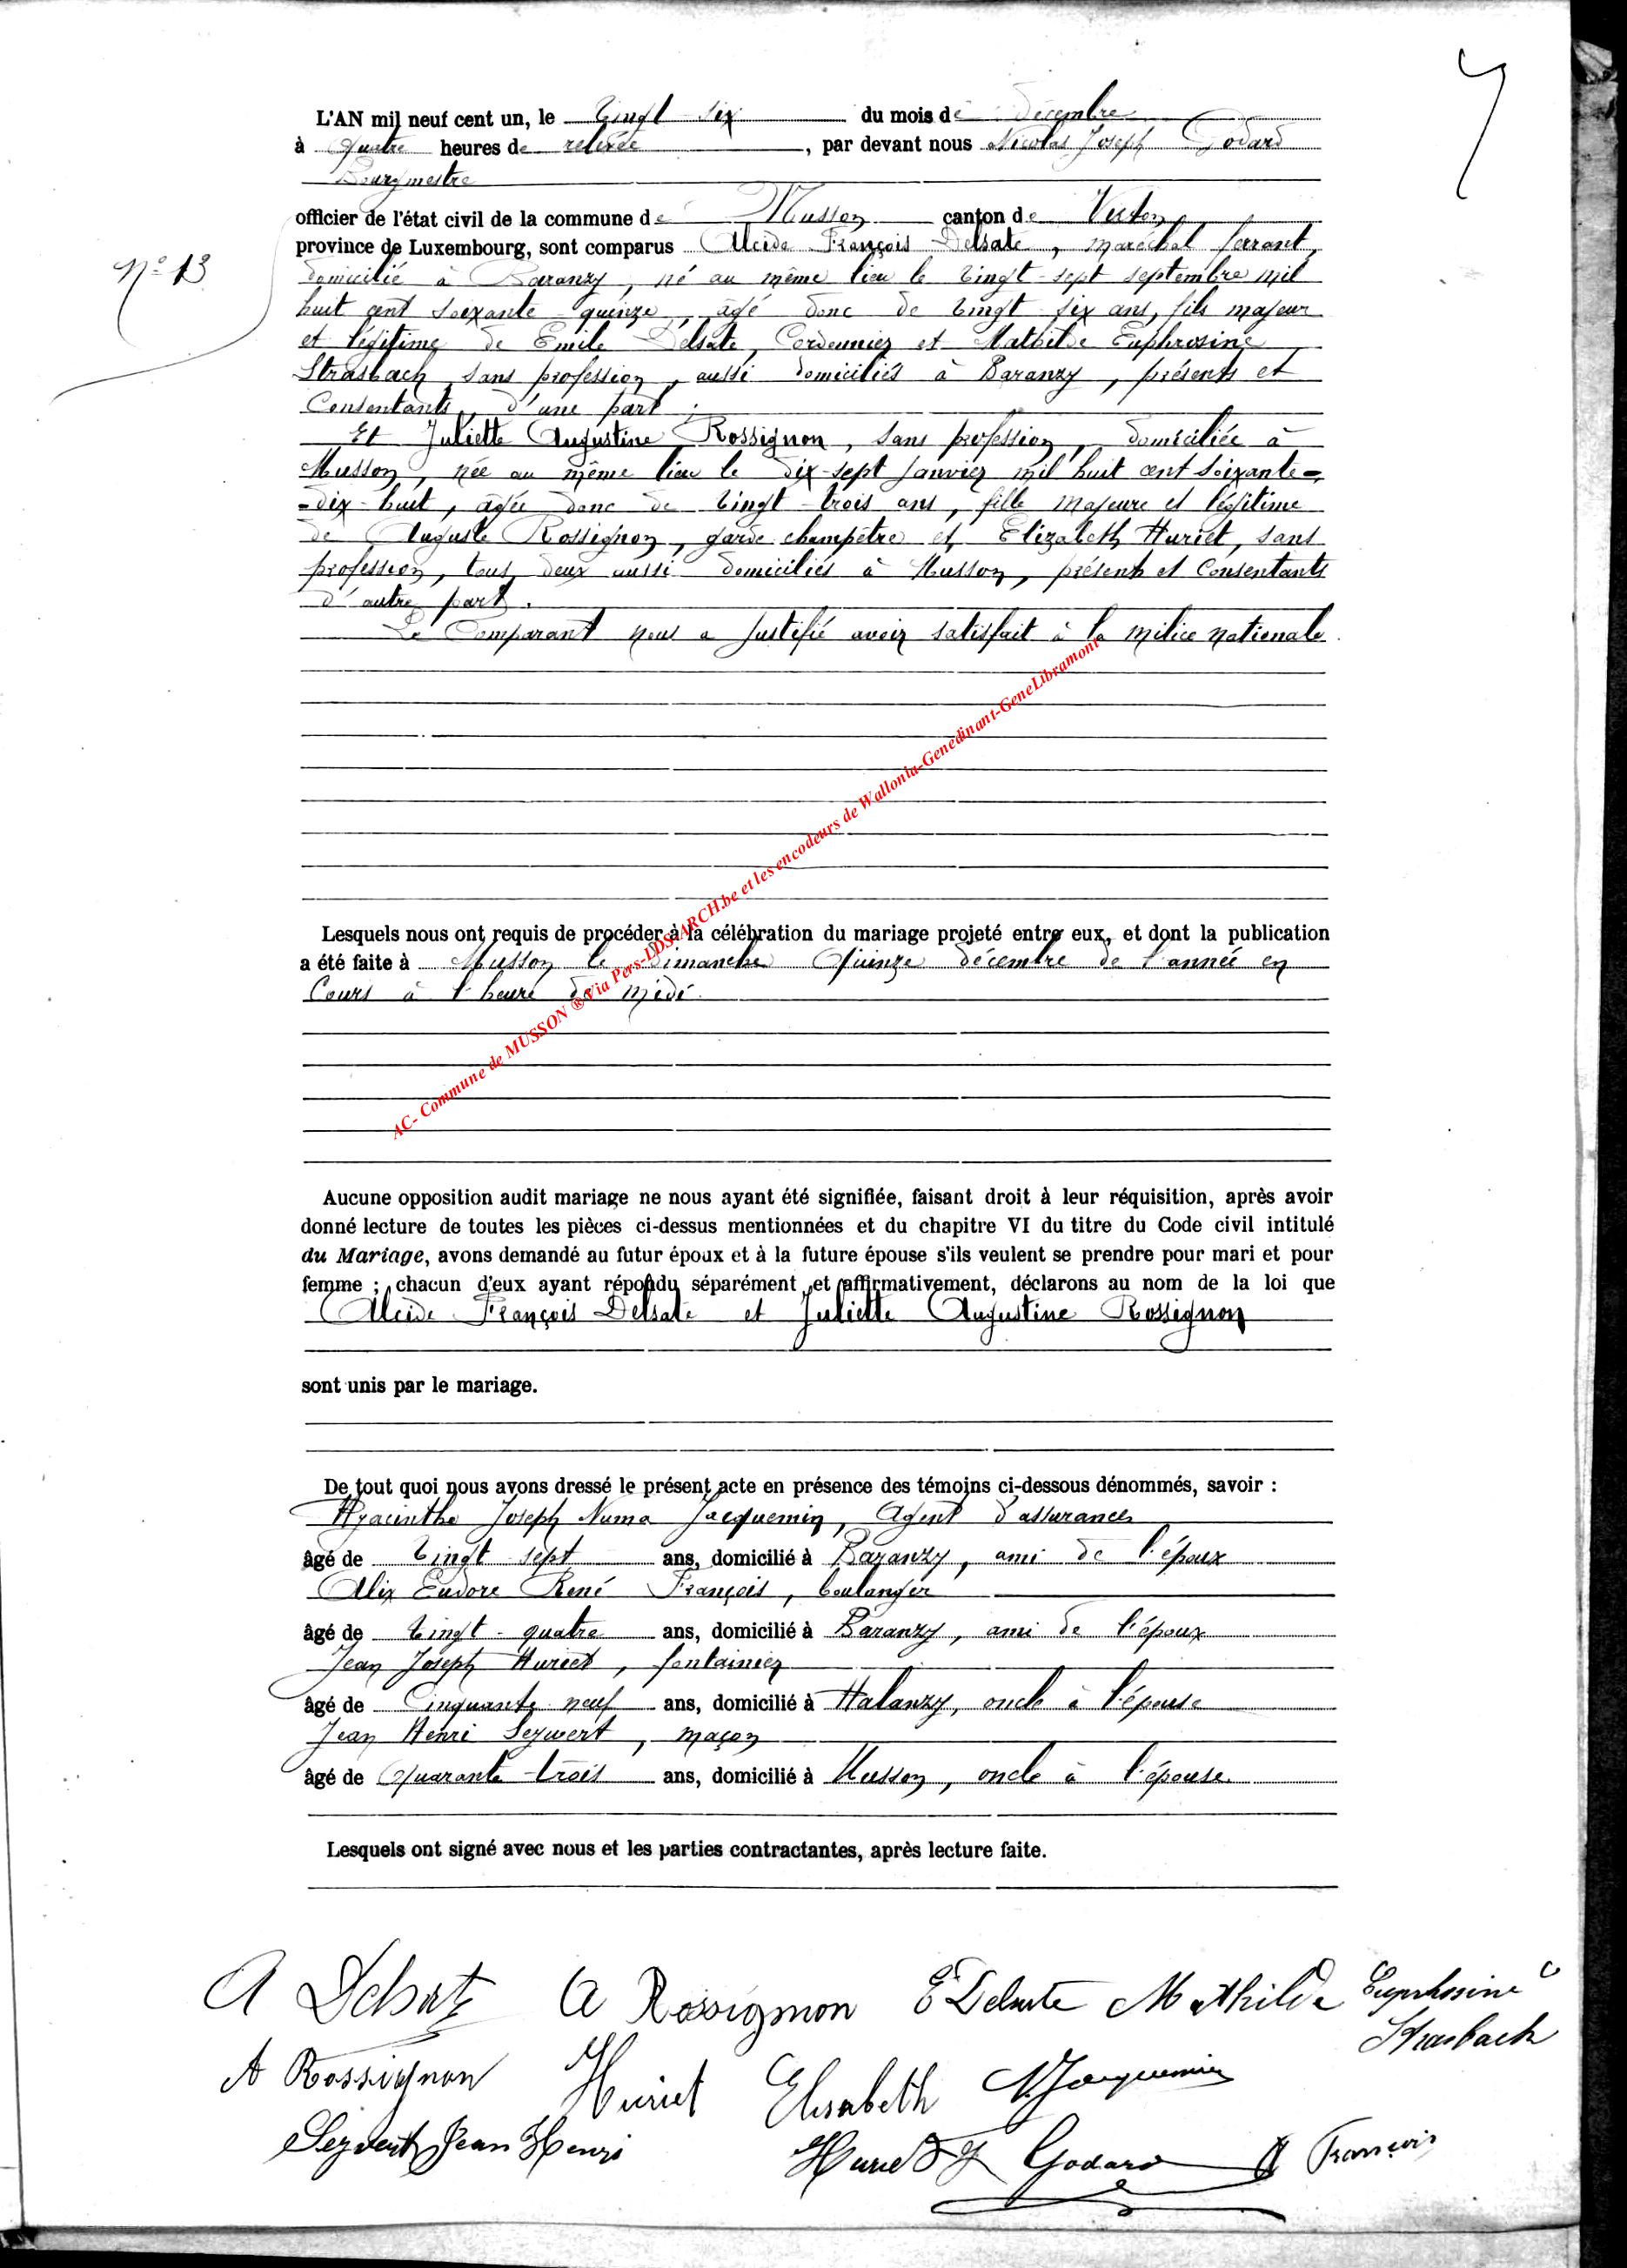 7
L'AN mil neuf cent un, le vingt six du mois de décembre
à quatre heures de relevée, par devant nous Nicolas Joseph Godard
Bourgmestre
officier de l'état civil de la commune de Musson canton de Virton,
province de Luxembourg, sont comparus Alcide François Delsate, maréchal ferrant,
N° 13
domicilié à Baranzy, né au même lieu le vingt-sept septembre mil
huit cent soixante-quinze, agé donc de vingt-six ans, fils majeur
et légitime de Emile Delsate, Cordonnier et Mathilde Euphrosine
Strasbach, sans profession, aussi domiciliés à Baranzy, présents et
Consentants, d'une part ;
Et Juliette Augustine Rossignon, sans profession, domiciliée à
Musson, née au même lieu le dix-sept Janvier mil huit cent soixante-
-dix-huit, agée donc de vingt-trois ans, fille majeure et légitime
de Auguste Rossignon, garde champêtre et Elizabeth Huriet, sans
profession, tous deux aussi domiciliés à Musson, présents et Consentants
d'autre part.
Le Comparant nous a Justifié avoir satisfait à la milice nationale.
AC- Commune de MUSSON ® Via Pers-LDS-ARCH.be et les encodeurs de Wallonia-Genedinant-GeneLibramont
Lesquels nous ont requis de procéder à la célébration du mariage projeté entre eux, et dont la publication
a été faite à Musson le Dimanche Quinze décembre de l'année en
Cours à l'heure de midi.
Aucune opposition audit mariage ne nous ayant été signifiée, faisant droit à leur réquisition, après avoir
donné lecture de toutes les pièces ci-dessus mentionnées et du chapitre VI du titre du Code civil intitulé
du Mariage, avons demandé au futur époux et à la future épouse s'ils veulent se prendre pour mari et pour
femme ; chacun d'eux ayant répondu séparément et affirmativement, déclarons au nom de la loi que
Alcide François Delsate et Juliette Augustine Rossignon
sont unis par le mariage.
De tout quoi nous avons dressé le présent acte en présence des témoins ci-dessous dénommés, savoir :
Hyacinthe Joseph Numa Jacquemin, Agent d'assurances
âgé de vingt sept ans, domicilié à Baranzy, ami de l'époux
Alix Eudore René François, boulanger
âgé de vingt-quatre ans, domicilié à Baranzy, ami de l'époux
Jean Joseph Huriet, fontainier
âgé de Cinquante neuf ans, domicilié à Halanzy, oncle à l'épouse
Jean Henri Sezwert, maçon
âgé de Quarante-trois ans, domicilié à Musson, oncle à l'épouse.
Lesquels ont signé avec nous et les parties contractantes, après lecture faite.
A Delsate A Rossignon E Delsate Mathilde Euphrosine
Strasbach
A Rossignon Huriet Elisabeth N. Jacquemin
Jean Henri
Huriet JJ Godard A François